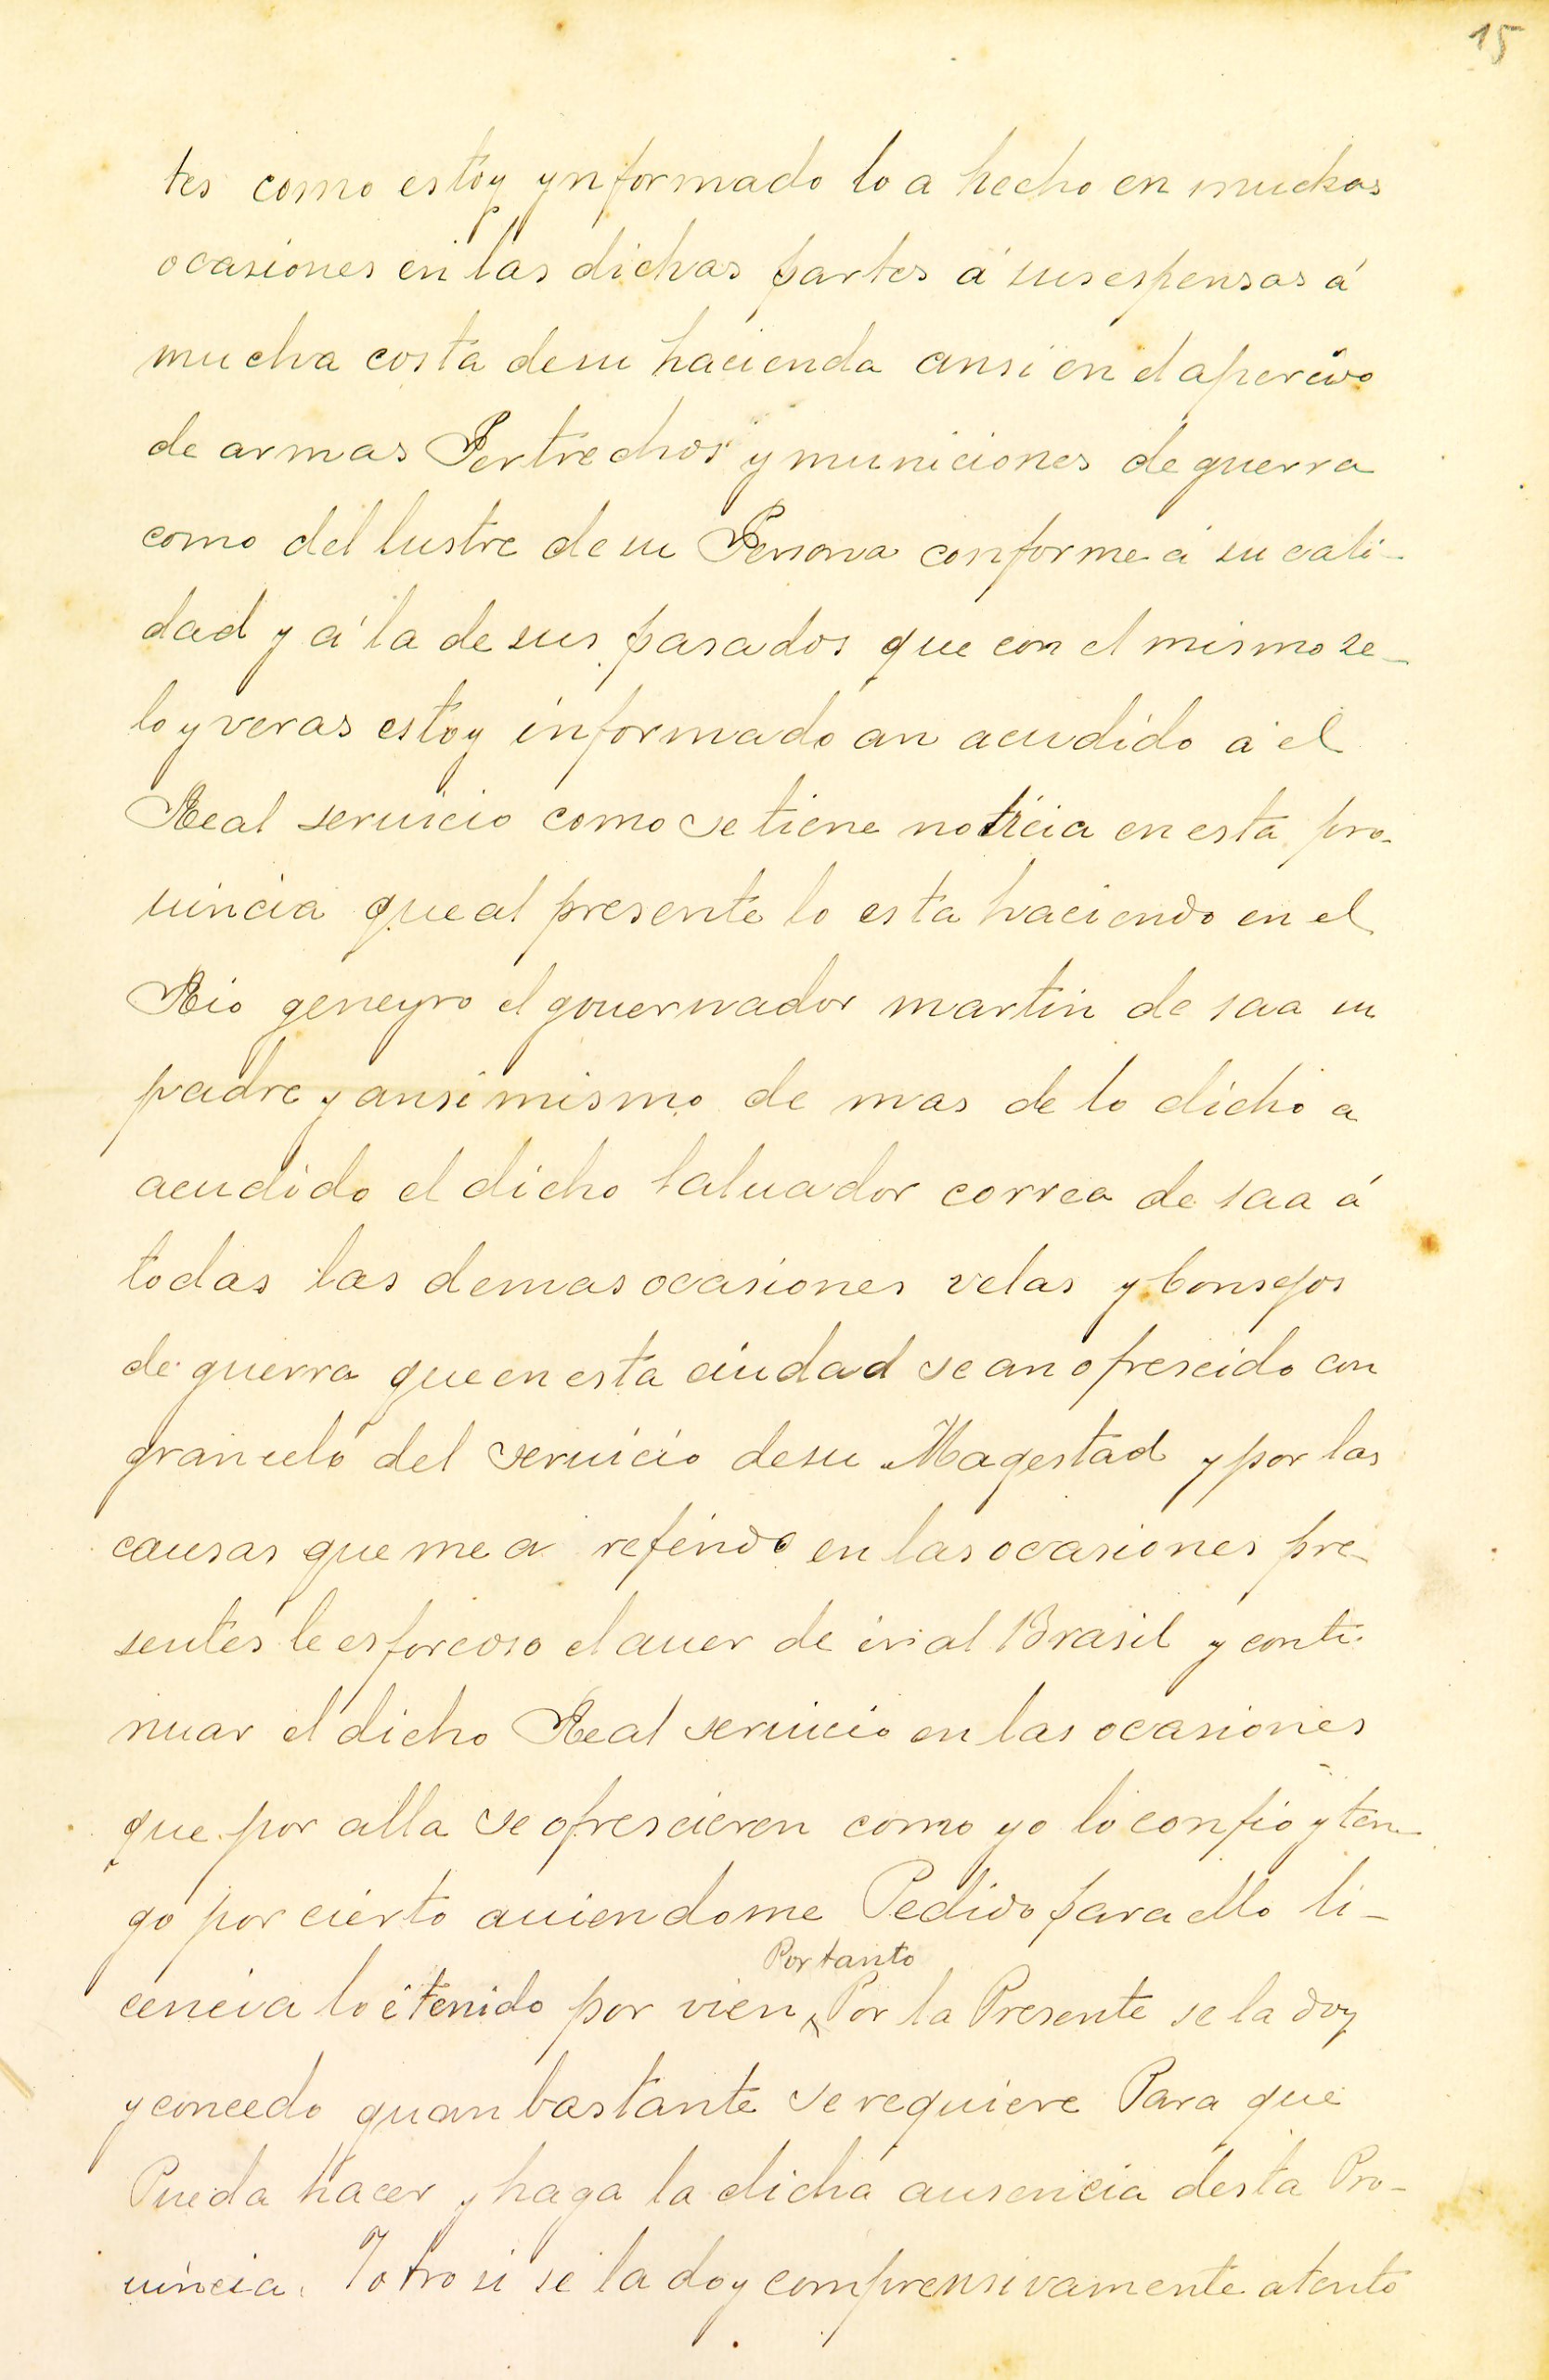 15
tes como estoy ynformado lo a hecho en muchas
ocasiones en las dichas partes á sus espensas á
mucha costa de su hacienda ansi en el apercivo
de armas Pertrechos y municiones de guerra
como del lustre de su Persona conforme á su cali-
dad y á la de sus pasados que con el mismo se-
lo y veras estoy informado an acudido á el
Real seruicio como se tiene noticia en esta pro-
uincia que al presente lo esta haciendo en el
Rio geneyro el gouernador martin de saa su
padre y ansi mismo de mas de lo dicho a
acudido el dicho saluador correa de saa á
todas las demas ocasiones velas y Consejos
de guerra que en esta ciudad se an ofrescido con
gran celo del seruicio de su Magestad y por las
causas que me a referido en las ocasiones pre-
sentes le es forcoso el auer de ir al Brasil y conti-
nuar el dicho Real seruicio en las ocasiones
que por alla se ofrescieren como yo lo confio y ten-
go por cierto auiendome Pedido para ello li-
Portanto
cencia lo é tenido por vien Por la Presente se la doy
y concedo quan bastante se requiere Para que
Pueda hacer y haga la dicha ausencia desta Pro-
uincia. Y otro si se la doy comprensivamente atento